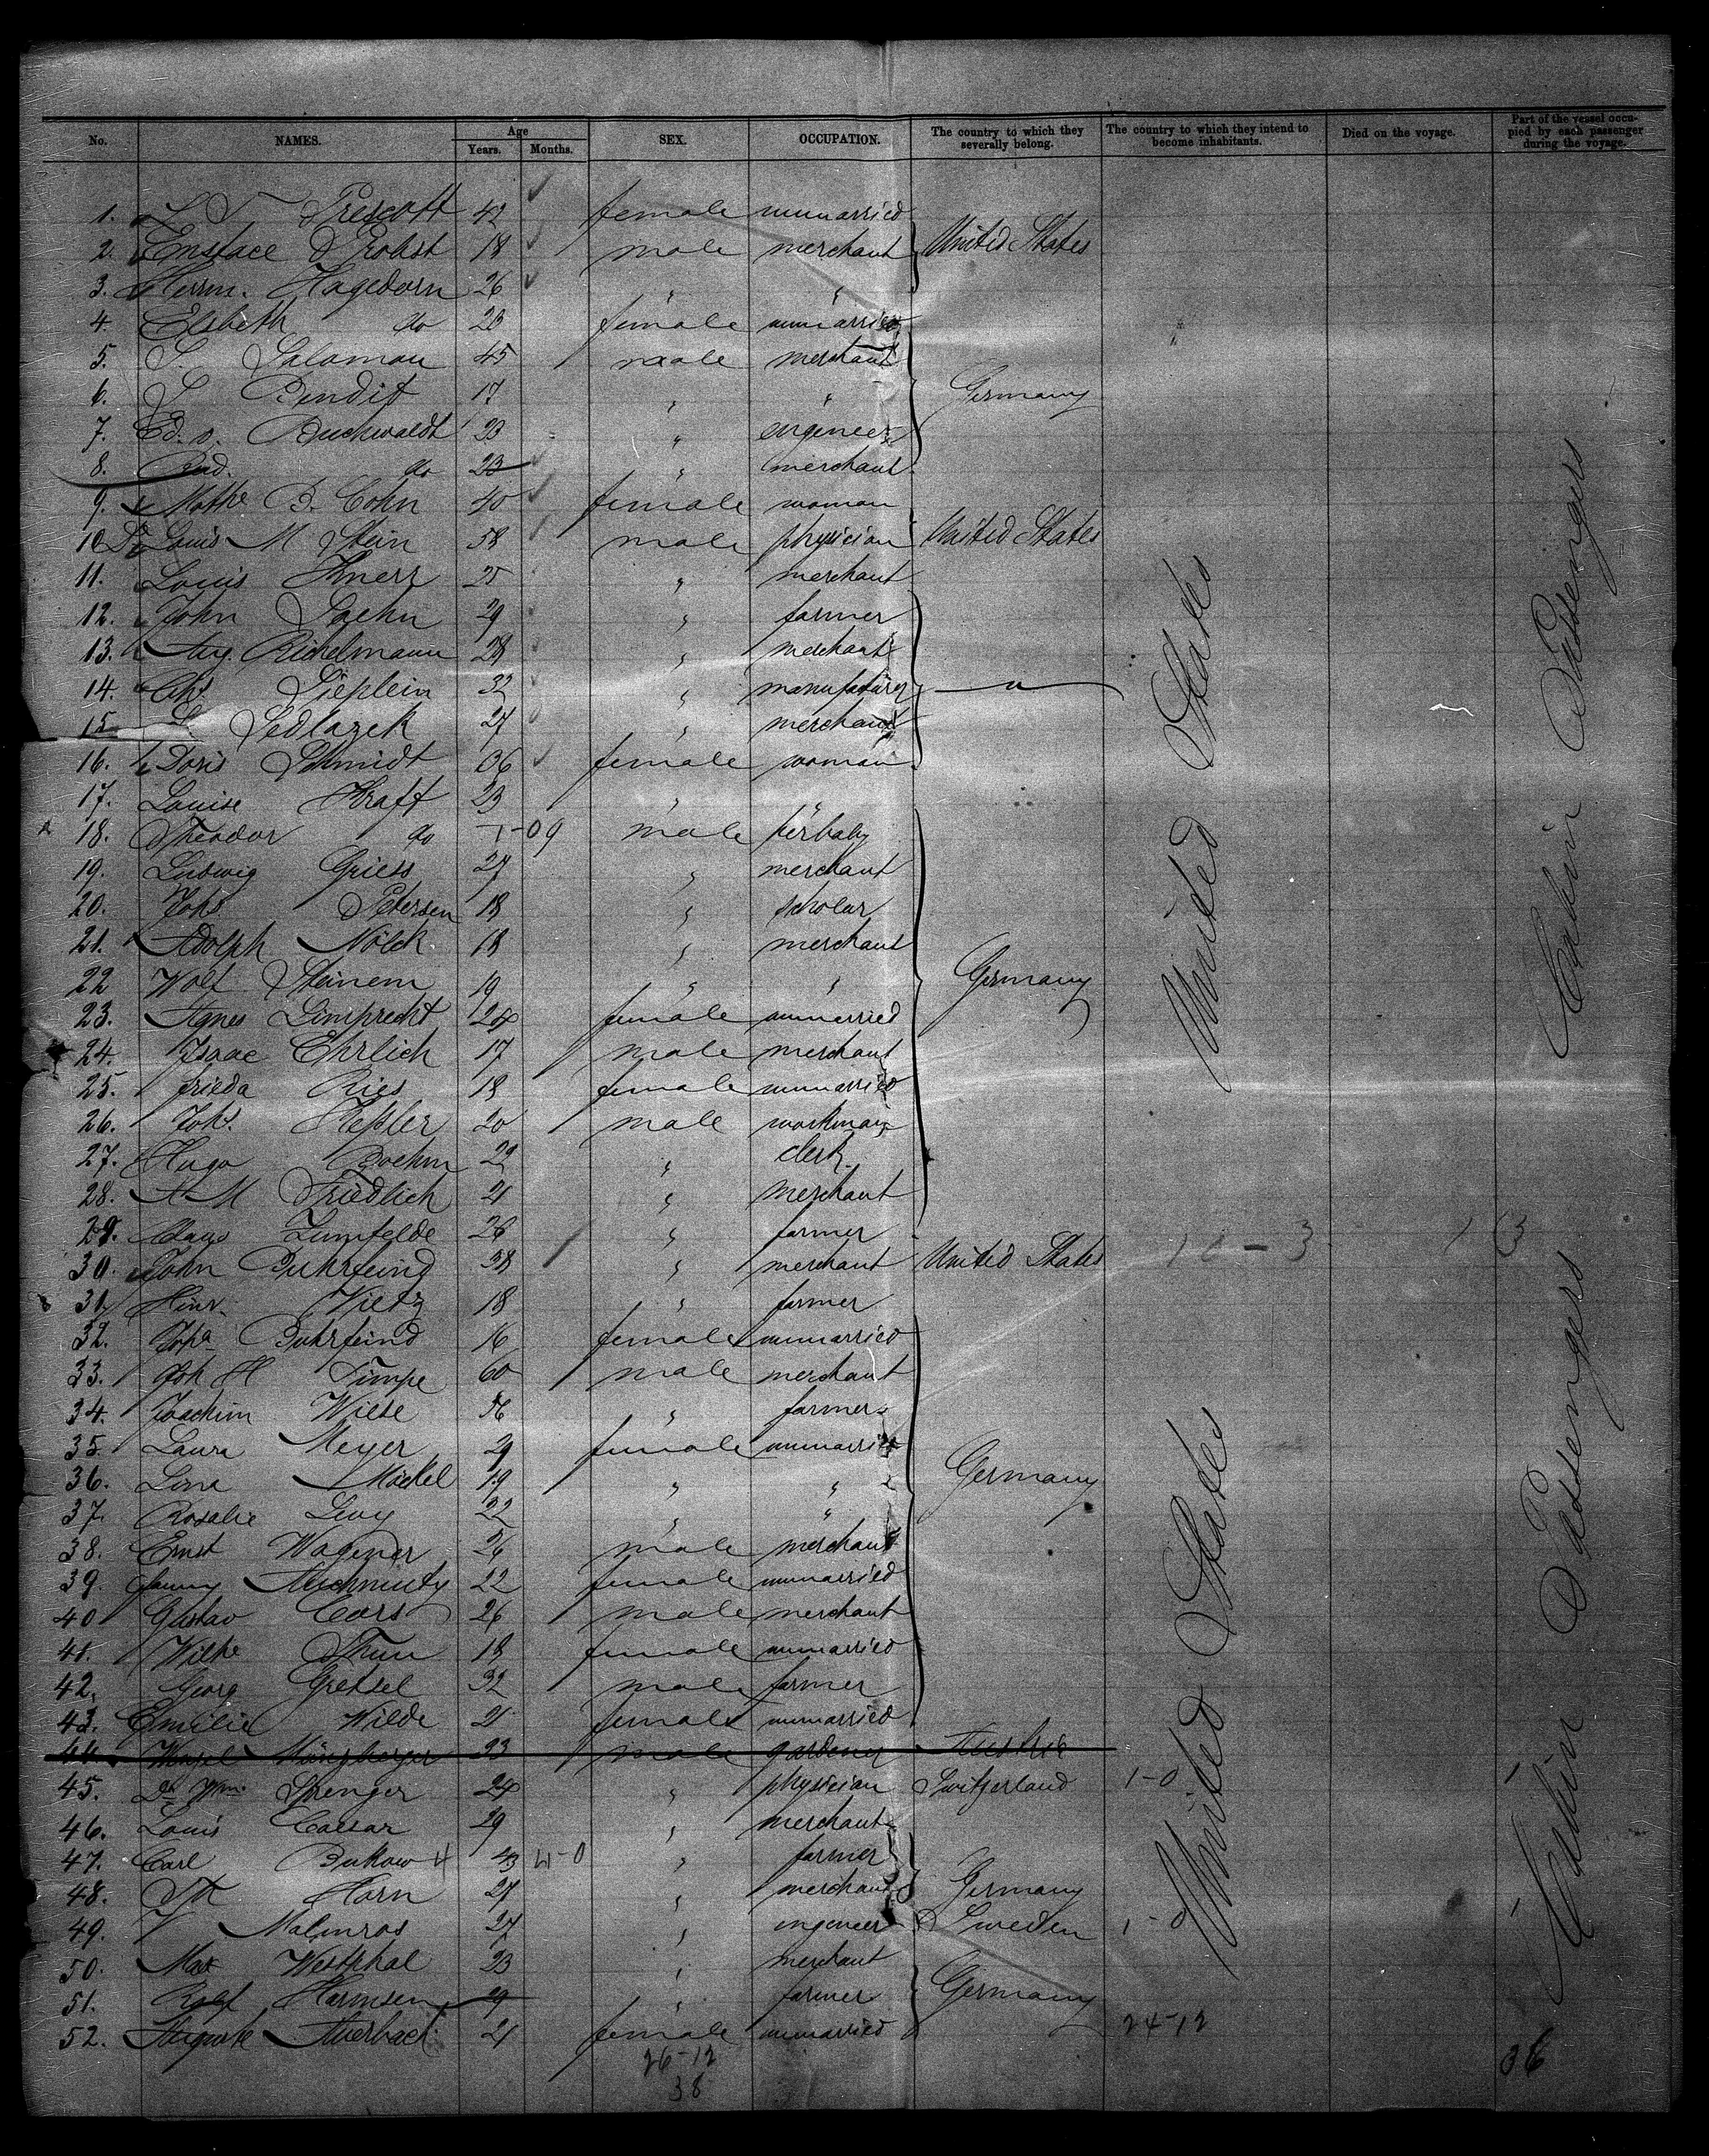 No. NAMES. Age Years. Months. SEX. OCCUPATION. The country to which they severally belong. The country to which they intend to become inhabitants. Died on the voyage. Part of the vessel occupied by each passenger during the voyage.
1. Prescott 42 female unmarried
2. Enstace Probst 18 male merchant United States
3. Herrm. Hagedorn 26 " "
4. Elsbeth do 23 female unmarried
5. S. Salomon 45 male merchant
6. Bendit 17 " " Germany
7. Ed. v. Buchwaldt 23 " engeneer
8. do 23 " merchant
9. Mathe B. Cohn 40 female woman
10 Dr Louis M Stein 58 male physician United States
11. Louis Knerr 25 " merchant
12. John 29 " farmer
13. Aug. Richelmann 28 " merchant
14. Chs. Sieplein 32 " manufacturer "
15. Sedlazek 27 " merchant
16. Doris Schmidt 36 female woman
17. Louise Kraft 23 " "
18. Theodor do 09 male her baby
19. Ludwig Griess 27 " merchant
20. Johs. Petersen 18 " scholar
21. Adolph Nölck 18 " merchant
22 Wolf Steinem 19 " " Germany
23. Agnes Limprecht 24 female unmarried
24. Isaac Ehrlich 17 male merchant
25. Frieda Ries 18 female unmarried
26. Johs. Keßler 20 male workman
27. Hugo Boehm 22 " clerk
28. A M Friedlich 21 " merchant
29. Claus Zumfelde 26 " farmer
30. John Buhrfeind 38 " merchant United States
31. Hinr. Vietz 18 " farmer
32. Buhrfeind 16 female unmarried
33. Joh H Timpe 60 male merchant
34. Joachim Wiese 56 " farmer
35. Laura Meyer 29 female unmarried
36. Line Möckel 19 " " Germany
37. Rosalie Levy 22 " "
38. Ernst Wagener 26 male merchant
39. Fanny 22 female unmarried
40 Gustav Cors 26 male merchant
41. Wilhe Thun 18 female unmarried
42. Georg Gretsel 32 male farmer
43. Emilie Wilde 21 female unmarried
44. Münzberger 23 male gardener Austria
45. Dr Wm. Sprenger 24 " physician Switzerland 1-0
46. Louis Caesar 29 " merchant
47. Carl Bukow 43 " farmer
48. Th Horn 27 " merchant Germany
49. V Malmros 27 " ingeneer Sweden 1-0
50. Max Westphal 23 " merchant
51. Harmsen 29 " farmer Germany
52. Auguste Auerbach 21 female unmarried 24-12
26-12
38
36
United States
United States
Cabin Passengers
Cabin Passengers